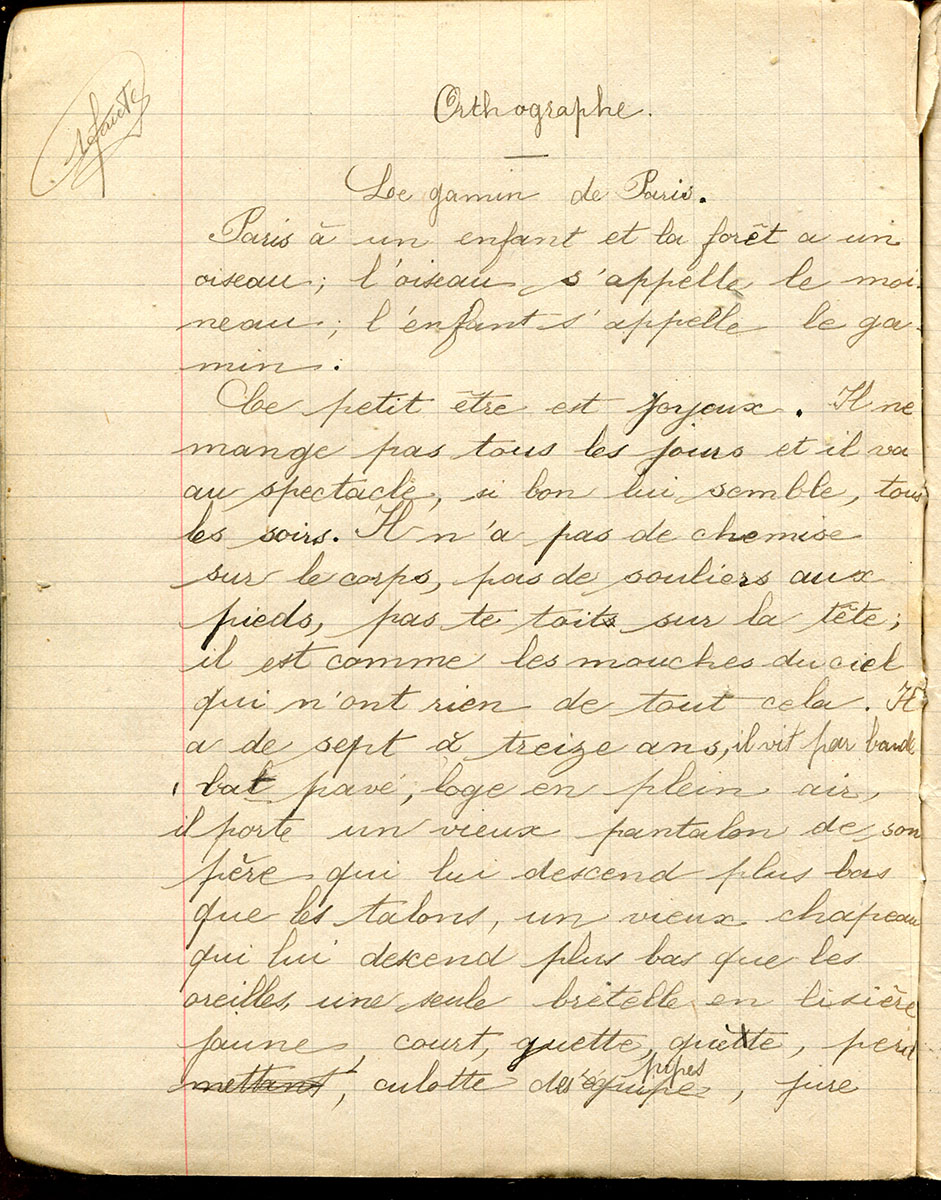 faute
Orthographe.
Le gamin de Paris.
Paris à un enfant et la forêt a un
oiseau ; l'oiseau s'appelle le moi-
neau ; l'enfant s'appelle le ga-
min.
Ce petit être est joyeux. Il ne
mange pas tous les jours et il va
au spectacle, si bon lui semble, tous
les soirs. Il n'a pas de chemise
sur le corps, pas de souliers aux
pieds, pas te toit sur la tête ;
il est comme les mouches du ciel
qui n'ont rien de tout cela. Il
a de sept à treize ans, il vit par bande
bat pavé, loge en plein air,
il porte un vieux pantalon de son
père qui lui descend plus bas
que les talons, un vieux chapeau
qui lui descend plus bas que les
oreilles, une seule bretelle en lisière
jaune, court, guette, quète, perd
mettant, culotte des pipes, jure